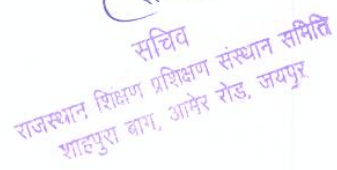 सचिव
राजस्थान शिक्षण प्रशिक्षण संस्थान समिति
शाहपुरा बाग, आमेर रोड, जयपुर